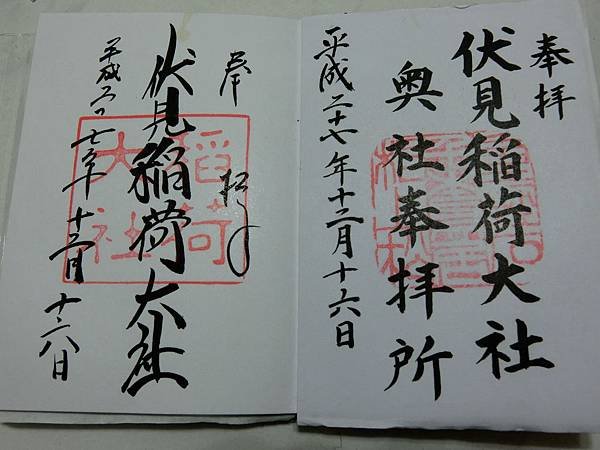 奉拝
伏見稲荷大社
奥社奉拝所
平成二十七年十二月十六日
奉拝
伏見稲荷大社
稲荷
大社
平成二十七年十二月十六日